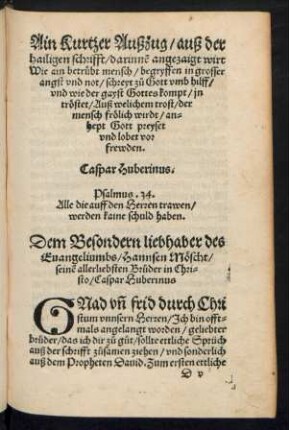 Ain Kurtzer Außzug/ auß der
hailigen schrifft/ darinnē angezaigt wirt
Wie ain betrübt mensch/ begryffen in grosser
angst vnd not/ schreyt zů Gott vmb hilff/
vnd wie der gayst Gottes kompt/ jn
tröstet/ Auß welichem trost/ der
mensch frölich wirdt/ an-
hept Gott preyset
vnd lobet vor
frewden.
Caspar Huberinus.
Psalmus. 34.
Alle die auff den Herren trawen/
werden kaine schuld haben.
Dem Besondern liebhaber des
Euangeliumbs/ Hannsen Möscht/
seinē allerliebsten Brůder in Chri-
sto/ Caspar Huberinus
GNad vn̄ frid durch Chri
stum vnnsern Herren/ Ich bin offt-
mals angelangt worden/ geliebter
brůder/ das ich dir zů gůt/ sollte ettliche Sprüch
auß der schrifft zůsamen ziehen/ vnd sonderlich
auß dem Propheten Dauid. Zum ersten ettliche
D v